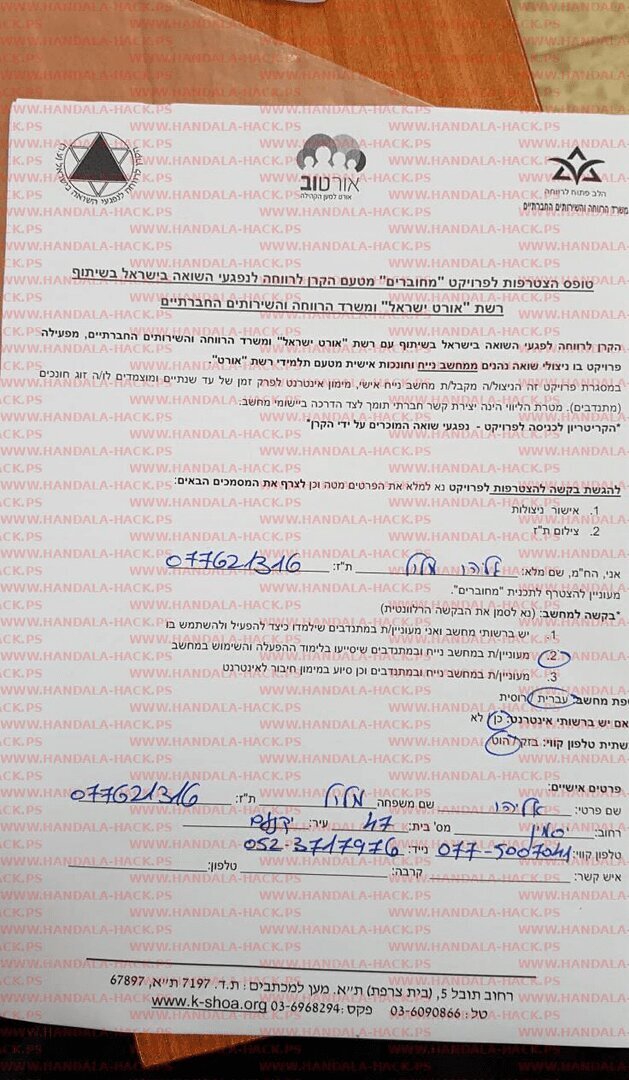 WWW.HANDALA-HACK.PS
הקרן לרווחה לנפגעי השואה בישראל
אורטוב
אורט למען הקהילה
הלב פתוח לרווחה
משרד הרווחה והשירותים החברתיים
טופס הצטרפות לפרויקט "מחוברים" מטעם הקרן לרווחה לנפגעי השואה בישראל בשיתוף
רשת "אורט ישראל" ומשרד הרווחה והשירותים החברתיים
הקרן לרווחה לפגעי השואה בישראל בשיתוף עם רשת "אורט ישראל" ומשרד הרווחה והשירותים החברתיים, מפעילה
פרויקט בו ניצולי שואה נהנים ממחשב נייח וחונכות אישית מטעם תלמידי רשת "אורט".
במסגרת פרויקט זה הניצול/ה מקבל/ת מחשב נייח אישי, מימון אינטרנט לפרק זמן של עד שנתיים ומוצמדים לו/ה זוג חונכים
(מתנדבים). מטרת הליווי הינה יצירת קשר חברתי תומך לצד הדרכה ביישומי מחשב.
*הקריטריון לכניסה לפרויקט - נפגעי שואה המוכרים על ידי הקרן*
להגשת בקשה להצטרפות לפרויקט נא למלא את הפרטים מטה וכן לצרף את המסמכים הבאים:
1. אישור ניצולות
2. צילום ת"ז
אני, החי"מ, שם מלא: ת"ז:
מעוניין להצטרף לתכנית "מחוברים".
*בקשה למחשב: (נא לסמן את הבקשה הרלוונטית)
1. יש ברשותי מחשב ואני מעוניין/ת במתנדבים שילמדו כיצד להפעיל ולהשתמש בו
2. מעוניין/ת במחשב נייח ובמתנדבים שיסייעו בלימוד ההפעלה והשימוש במחשב
3. מעוניין/ת במחשב נייח ובמתנדבים וכן סיוע במימון חיבור לאינטרנט
שפת מחשב: עברית / רוסית
האם יש ברשותי אינטרנט: כן / לא
תשתית טלפון קווי: בזק / הוט
פרטים אישיים:
שם פרטי: שם משפחה ת"ז:
רחוב: מס' בית: עיר:
טלפון קווי: נייד:
איש קשר: קרבה: טלפון:
רחוב תובל 5, (בית צרפת) ת"א. מען למכתבים : ת.ד. 7197 ת"א, 67897
טל : 03-6090866 פקס :03-6968294 www.k-shoa.org